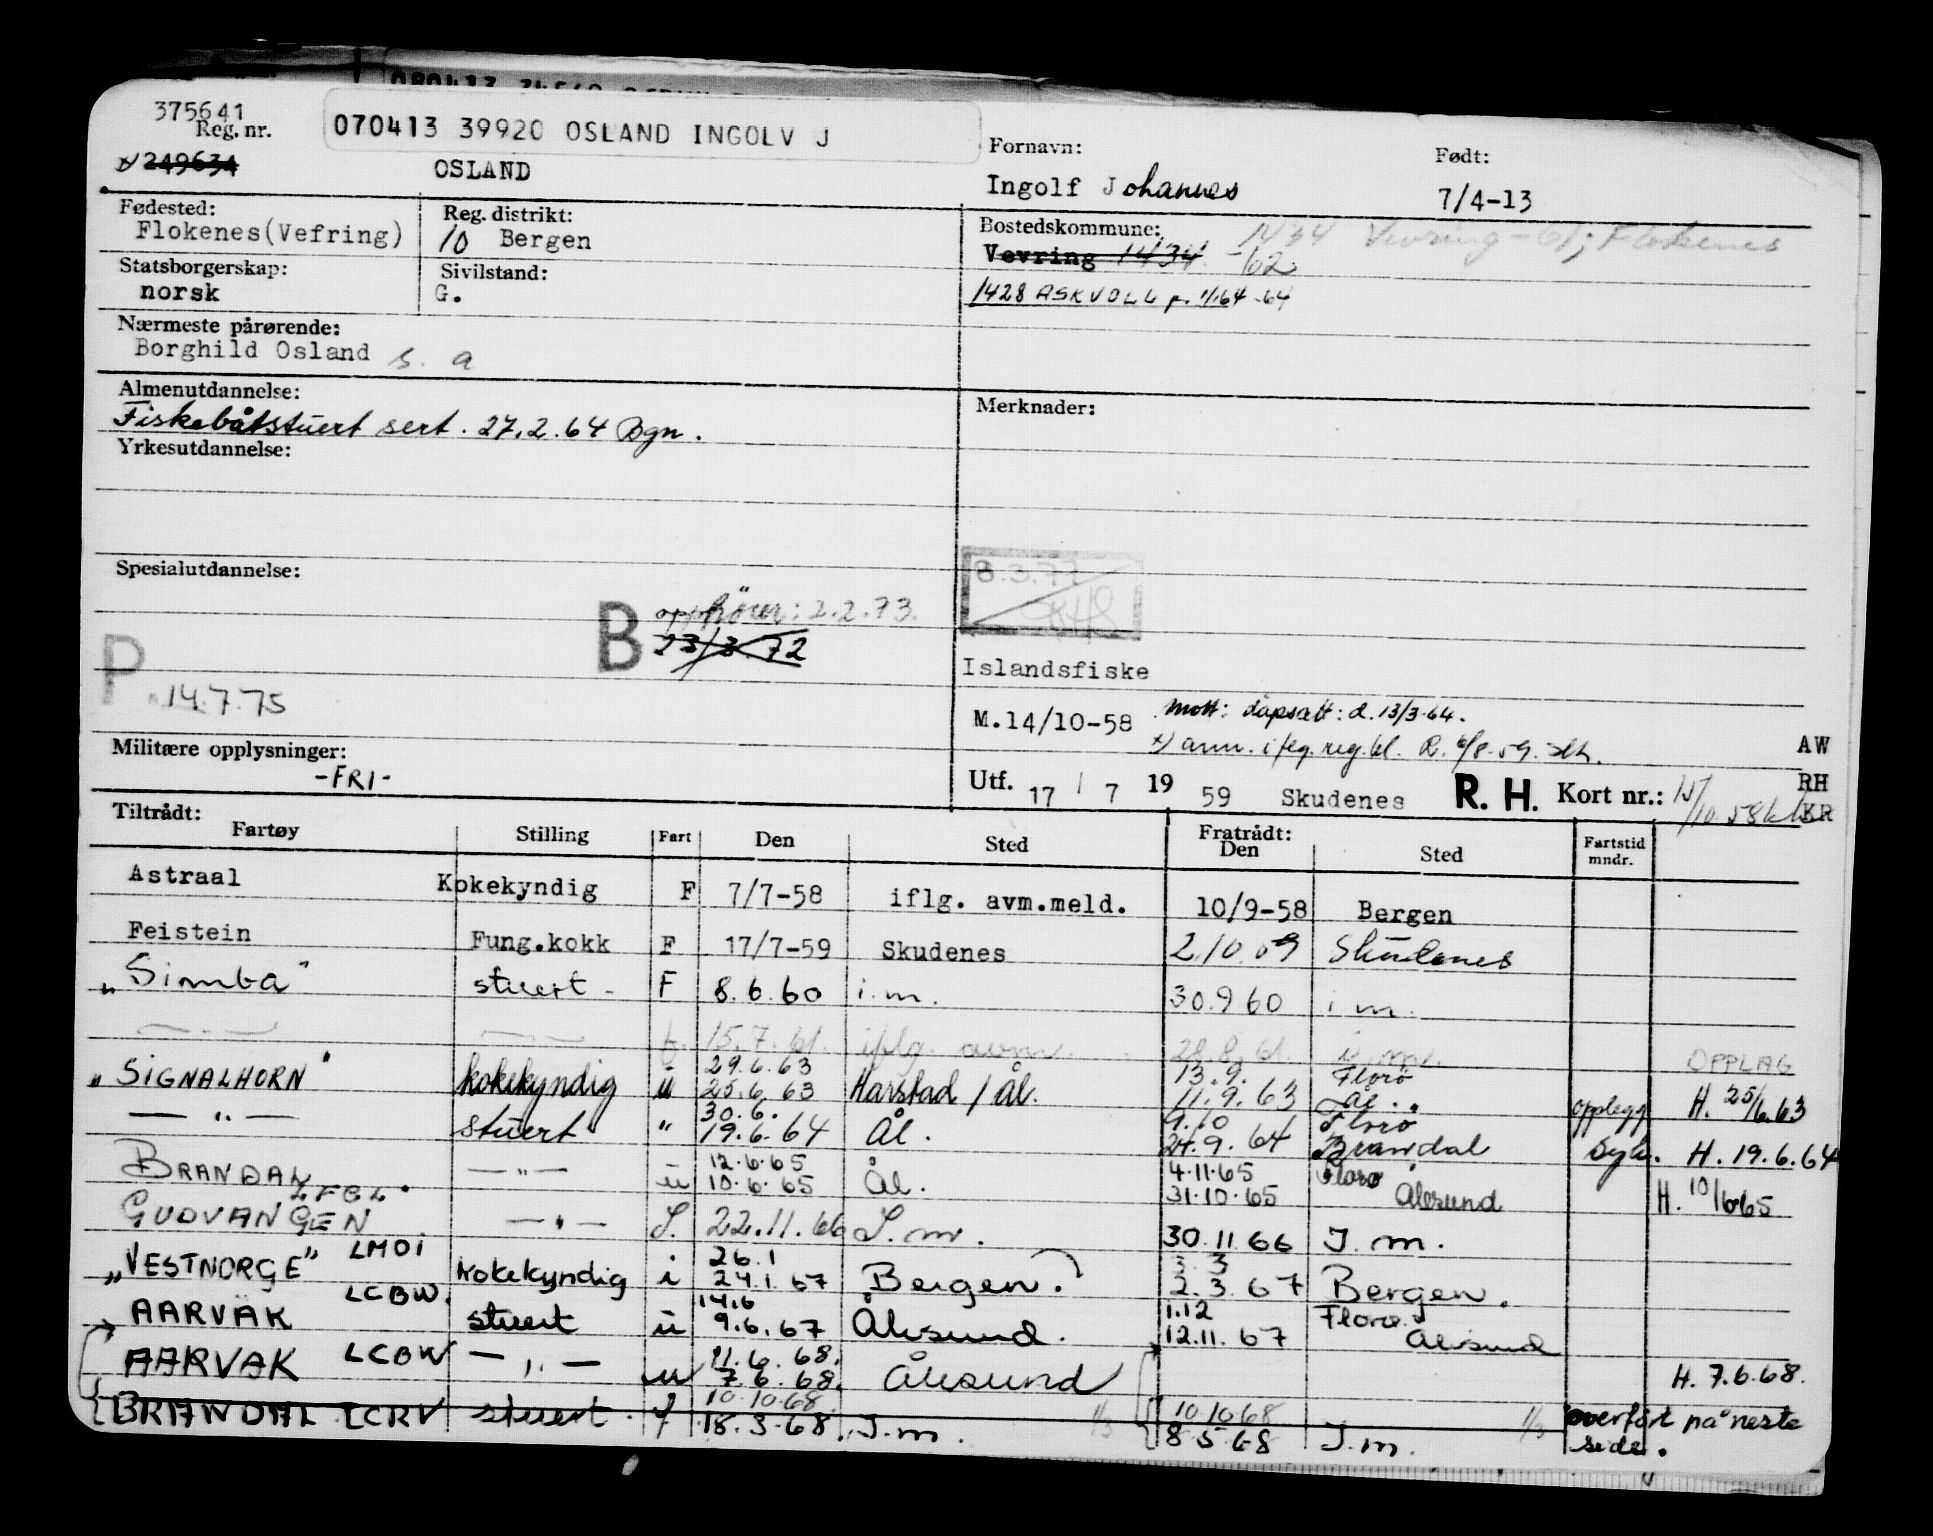 375641
Reg. nr.
070413 39920 OSLAND INGOLV J
x) 249634
OSLAND
Fornavn:
Ingolf Johannes
Født:
7/4-13
Fødested:
Flokenes(Vefring)
Reg. distrikt:
10 Bergen
Bostedskommune:
1434 Vevring - 61; Flokenes
Vevring 1434 -62
Statsborgerskap:
norsk
Sivilstand:
G.
1428 ASKVOLL fr. 1/1 64 -64
Nærmeste pårørende:
Borghild Osland s. a
Almenutdannelse:
Fiskebåtstuert sert. 27.2.64 Bgn.
Merknader:
Yrkesutdannelse:
Spesialutdannelse:
8.3.77
B opphører: 2.2.73.
23/3.72
P 14.7.75
Islandsfiske
M.14/10-58 mott: dåpsatt: d. 13/3-64.
x) ann. i flg. reg. bl. R. 6/8-59.
Militære opplysninger:
-FRI-
AW
RH
KR
Utf. 17 / 7 19 59 Skudenes R. H. Kort nr.:
Tiltrådt:
Fartøy Stilling Fart Den Sted Fratrådt: Den Sted Fartstid mndr.
Astraal Kokekyndig F 7/7-58 iflg. avm.meld. 10/9-58 Bergen
Feistein Fung.kokk F 17/7-59 Skudenes 2/10 59 Skudenes
"Simba" stuert - F 8.6.60 i.m. 30.9 60 i m.
— " — — " — f. 15.7.61. iflg. avm. 28.8.61. i. m. OPPLAG
29.6.63 13.9. Florø
"SIGNALHORN" kokekyndig u 25.6.63 Harstad / Ål. 11.9.63 Ål. opplegg H. 25/6.63
30.6. 9.10 Florø
— " — stuert " 19.6.64 Ål. 24.9.64 Brandal Syk. H. 19.6.64
12.6.65 4.11.65 Florø
BRANDAL — " — u 10.6.65 Ål. 31.10.65 Ålesund H. 10/6 65
GUDVANGEN — " — I. 22.11.66 I. m. 30.11 66 I. m.
26.1 3.3
"VESTNORGE" LMOI kokekyndig i 24.1.67 Bergen. 2.3.67 Bergen.
14.6 1.12 Florø
AARVAK LCBW. stuert u 9.6.67 Ålesund. 12.11.67 Ålesund
11.6.68.
AARVAK LCBW — " — u 7.6.68. Ålesund H. 7.6.68.
10.10.68. 10.10.68
BRANDAL LCRV stuert. f 18.3.68 I.m. 1/3 8 5 68 I.m. 1/3 overført på neste side.